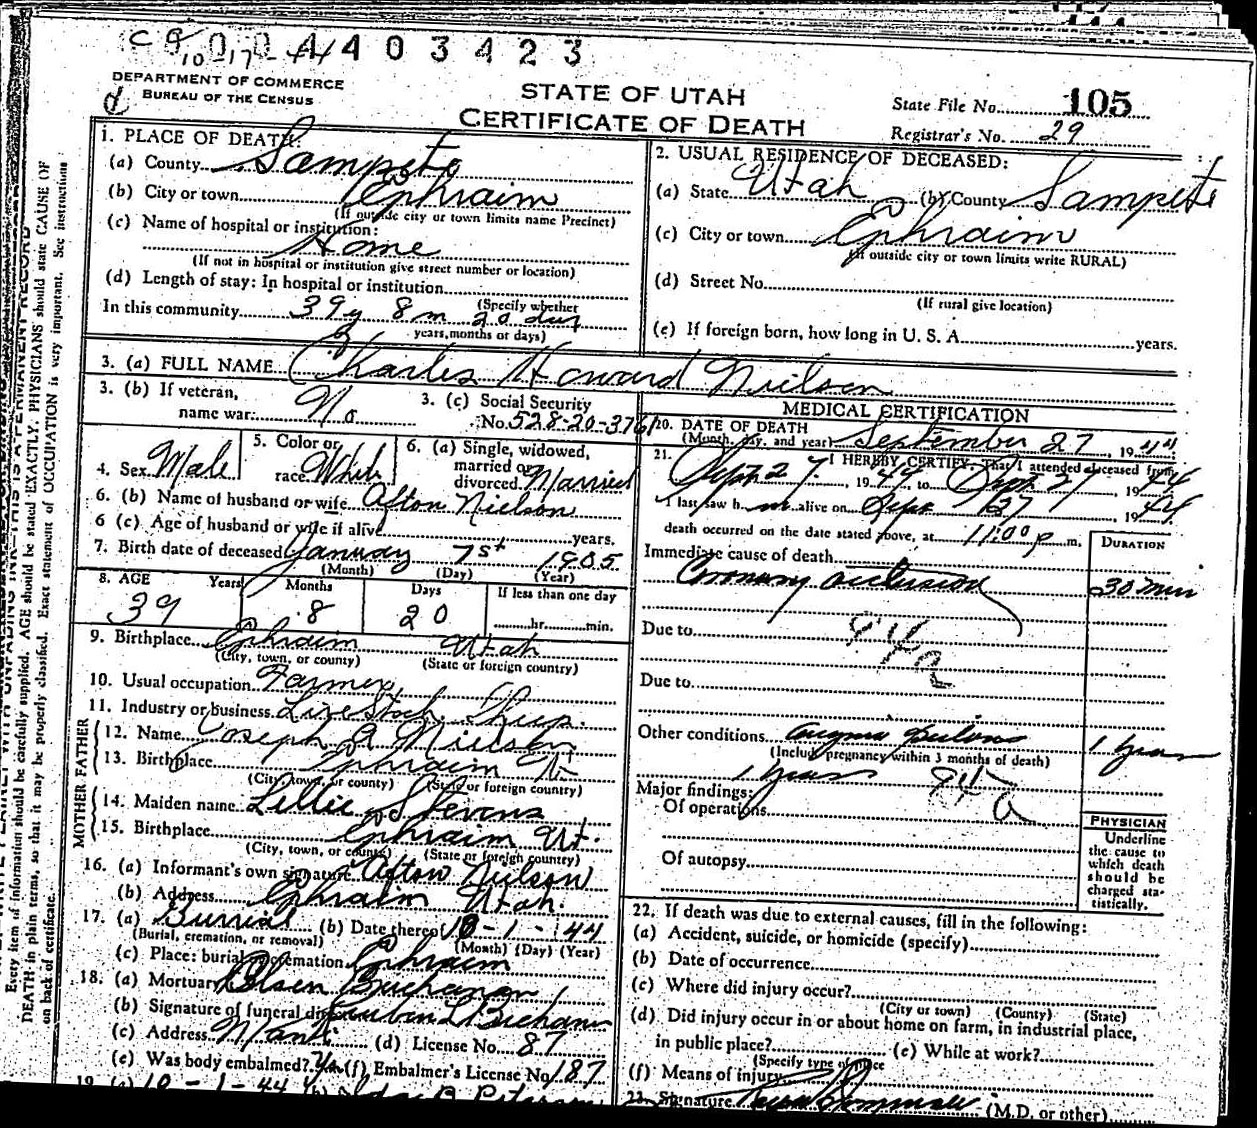 C 9 0 0 4 4 0 3 4 2 3
10-17-44
DEPARTMENT OF COMMERCE
BUREAU OF THE CENSUS
d
STATE OF UTAH
CERTIFICATE OF DEATH
State File No. 105
Registrar's No. 29
1. PLACE OF DEATH:
(a) County Sampete
(b) City or town Ephraim
(If outside city or town limits name Precinct)
(c) Name of hospital or institution:
Home
(If not in hospital or institution give street number or location)
(d) Length of stay: In hospital or institution
(Specify whether
In this community 39 y 8 m 20 days
years, months or days)
2. USUAL RESIDENCE OF DECEASED:
(a) State Utah (b) County Sampete
(c) City or town Ephraim
(If outside city or town limits write RURAL)
(d) Street No.
(If rural give location)
(e) If foreign born, how long in U. S. A. years.
3. (a) FULL NAME Charles Howard Nielson
3. (b) If veteran,
name war: No
3. (c) Social Security
No. 528-20-3761
4. Sex Male
5. Color or
race White
6. (a) Single, widowed,
married or
divorced Married
6. (b) Name of husband or wife Afton Nielson
6 (c) Age of husband or wife if alive years.
7. Birth date of deceased January 7st 1905
(Month) (Day) (Year)
8. AGE Years Months Days If less than one day
39 8 20 hr. min.
9. Birthplace Ephraim Utah
(City, town, or county) (State or foreign country)
10. Usual occupation Farmer
11. Industry or business Live Stock Sheep.
FATHER
12. Name Joseph A Nielson
13. Birthplace Ephraim Ut
(City, town, or county) (State or foreign country)
MOTHER
14. Maiden name Lillie Stevens
15. Birthplace Ephraim Ut.
(City, town, or county) (State or foreign country)
16. (a) Informant's own signature Afton Nielson
(b) Address Ephraim Utah.
17. (a) Burrial (b) Date thereof 10-1-44
(Burial, cremation, or removal) (Month) (Day) (Year)
(c) Place: burial or cremation Ephraim
18. (a) Mortuary Olsen Buchanan
(b) Signature of funeral director Reuben L Buchanan
(c) Address Manti (d) License No. 87
(e) Was body embalmed? Yes (f) Embalmer's License No. 187
19. (a) 10-1-44 (b)
MEDICAL CERTIFICATION
20. DATE OF DEATH
(Month, day, and year) September 27, 1944
21. I HEREBY CERTIFY, That I attended deceased from
Sept 27, 1944, to Sept 27, 1944
I last saw h m alive on Sept 27 1944
death occurred on the date stated above, at 11:00 p m.
DURATION
Immediate cause of death
Coronary occlusion 30 min
Due to
94a
Due to
Other conditions Angina 1 year
(Include pregnancy within 3 months of death)
1 year 94a
Major findings:
Of operations
Of autopsy
PHYSICIAN
Underline
the cause to
which death
should be
charged sta-
tistically.
22. If death was due to external causes, fill in the following:
(a) Accident, suicide, or homicide (specify)
(b) Date of occurrence
(c) Where did injury occur?
(City or town) (County) (State)
(d) Did injury occur in or about home on farm, in industrial place,
in public place? (e) While at work?
(Specify type of place
(f) Means of injury
23. Signature (M.D. or other)
Every item of information should be carefully supplied. AGE should be stated EXACTLY. PHYSICIANS should state CAUSE OF
DEATH in plain terms, so that it may be properly classified. Exact statement of OCCUPATION is very important. See instructions
on back of certificate.